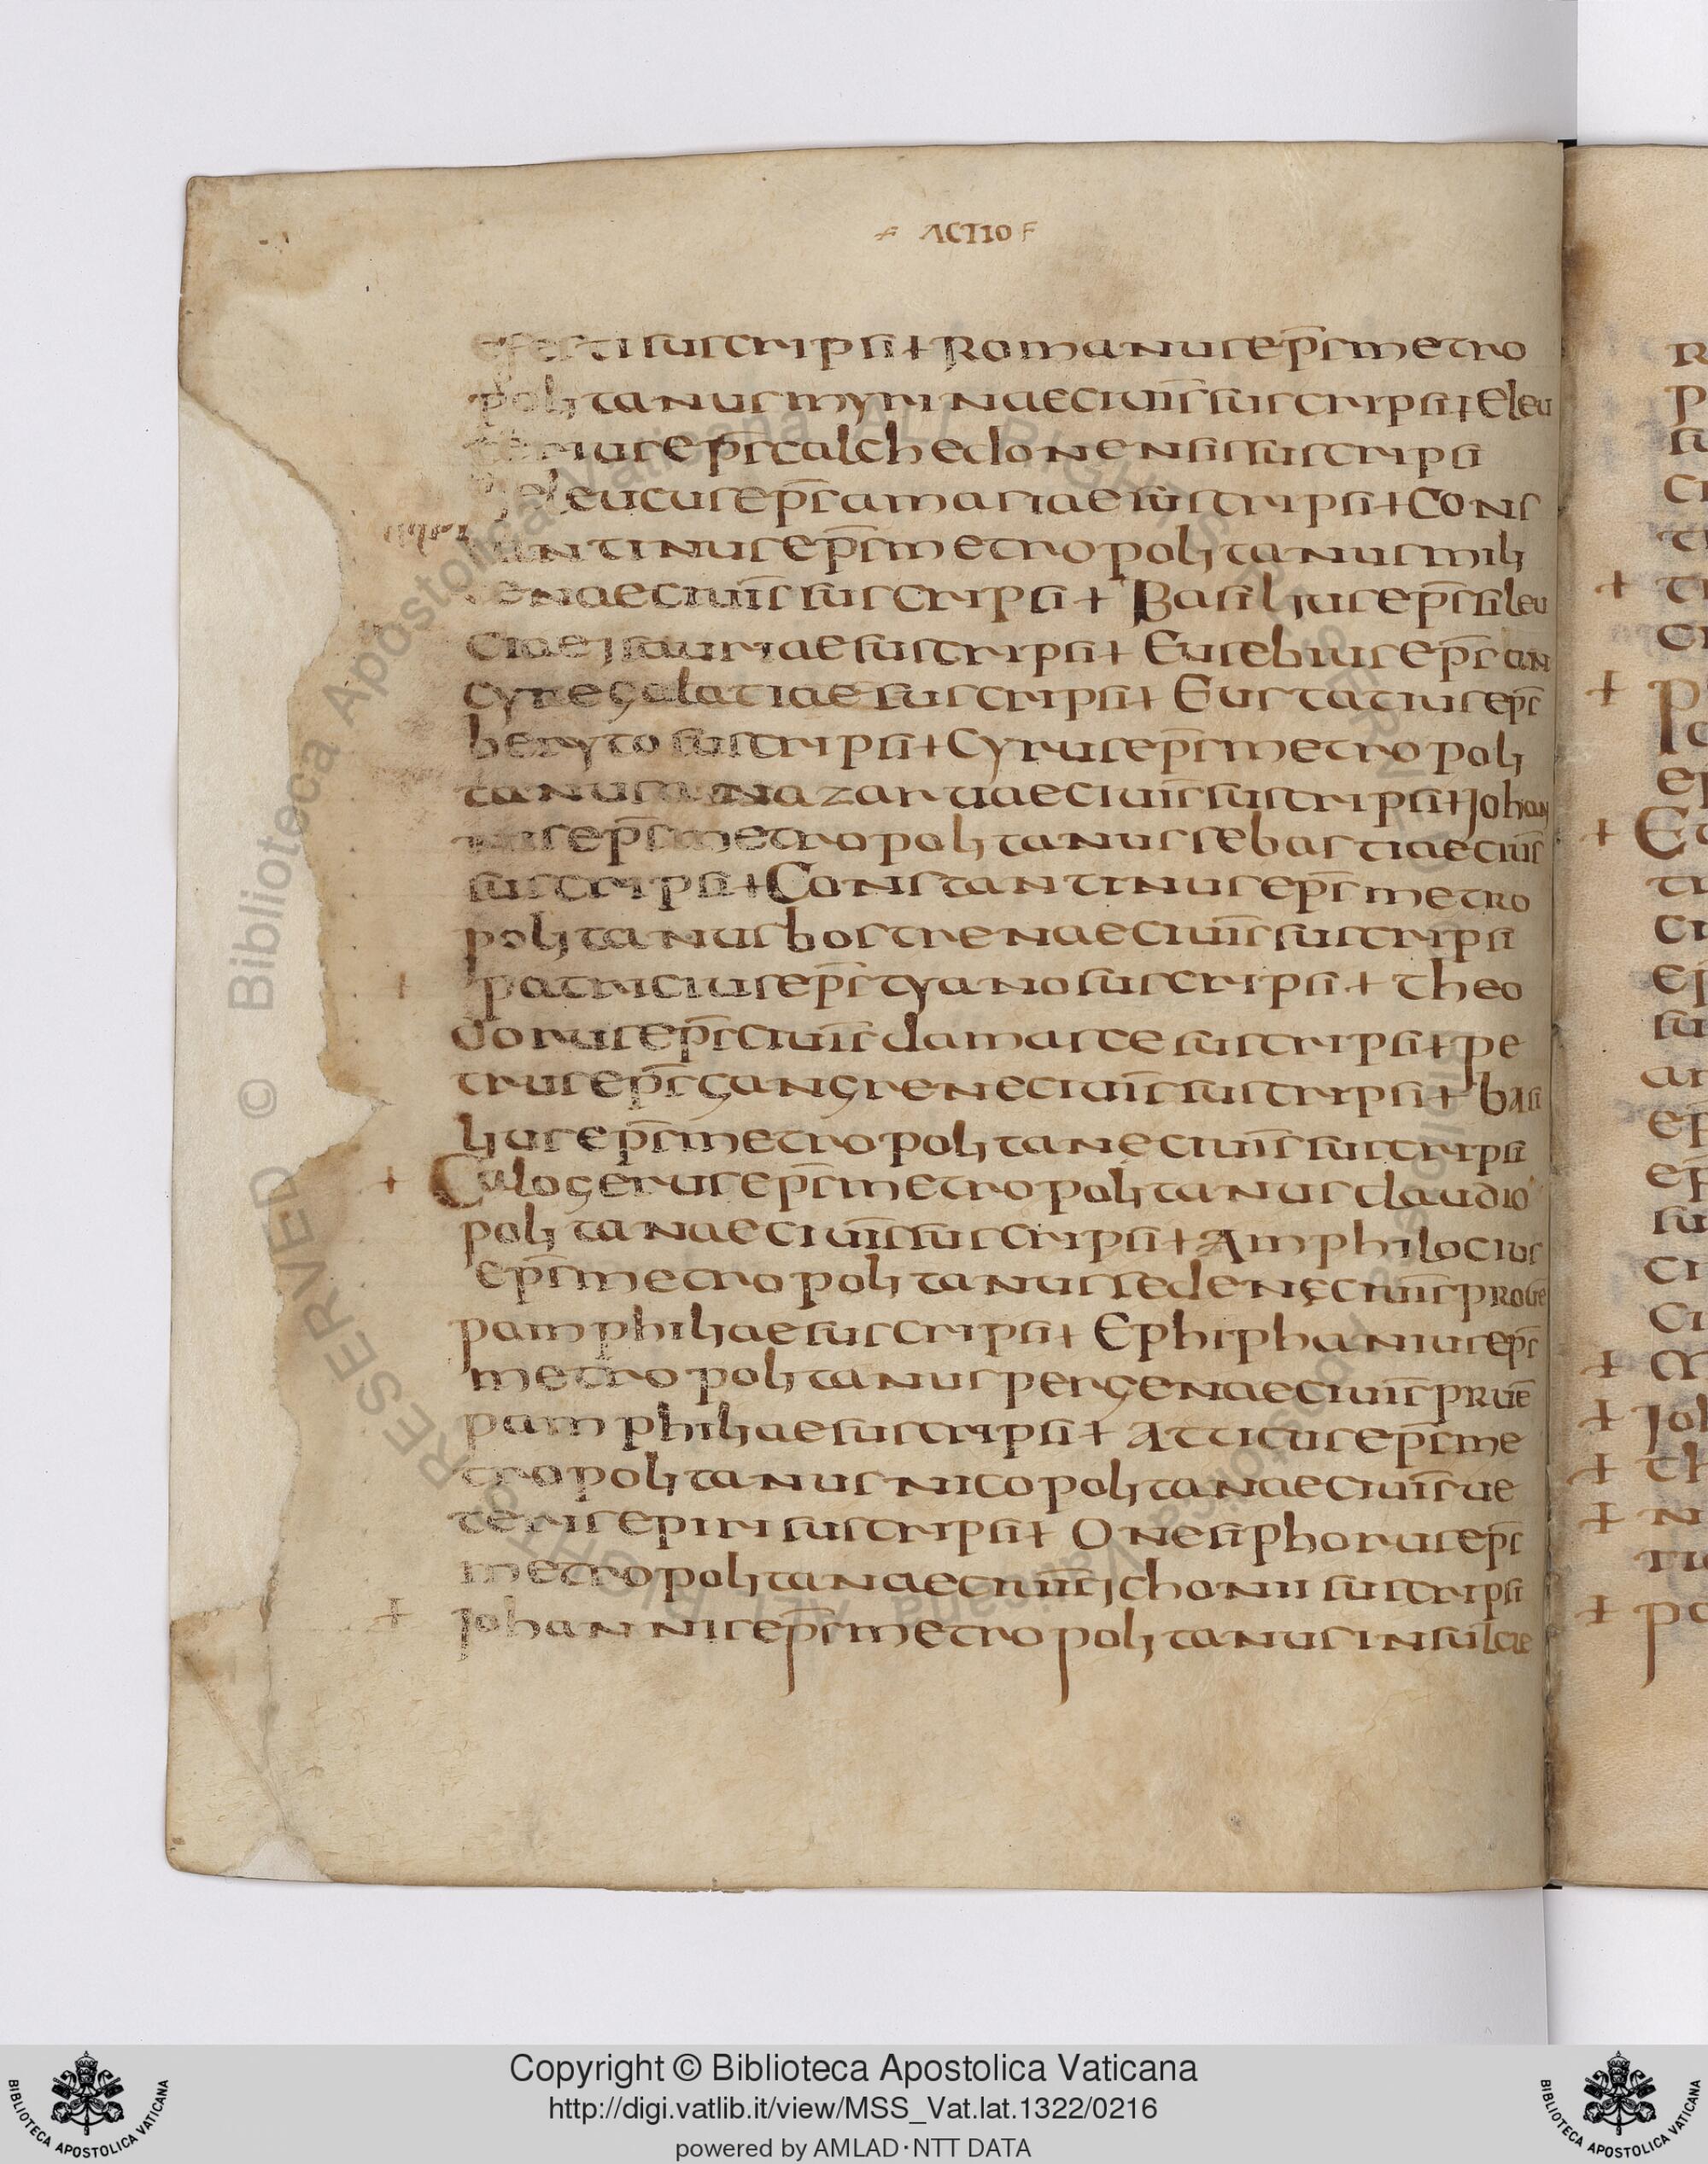 + ACTIO F
efesti suscripsi + Romanus ep̅s metro
politanus myrinae ciuit̅s suscripsi + Eleu
terius ep̅s calchedonensis suscripsi
Seleucus ep̅s amasiae suscripsi + Cons
tantinus ep̅s metropolitanus mili
tenae ciuit̅s suscripsi + Basilius ep̅s sileu
ciae isauriae suscripsi + Eusebius ep̅s an
cyre galatiae suscripsi + Eustatius ep̅s
beryto suscripsi + Cyrus ep̅s metropoli
tanus anazaruae ciuit̅s suscripsi + Johan
nis ep̅s metropolitanus sebastiae ciuit̅s
suscripsi + Constantinus ep̅s metro
politanus bostrenae ciuit̅s suscripsi
+ patricius ep̅s tyano suscripsi + theo
dorus ep̅s ciuit̅s damasce suscripsi + pe
trus ep̅s gangrene ciuit̅s suscripsi + basi
lius ep̅s metropolitanę ciuit̅s suscripsi
+ Calogerus ep̅s metropolitanus claudio
politanae ciuit̅s suscripsi + Amphilocius
ep̅s metropolitanus sedenę ciuit̅s prouē
pamphiliae suscripsi + Ephiphanius ep̅s
metropolitanus pergenae ciuit̅s pruē
pamphiliae suscripsi + Atticus ep̅s me
tropolitanus nicopolitanae ciuit̅s ue
teris epiri suscripsi + Onesiphorus ep̅s
metropolitanae ciuit̅s ichonii suscripsi
+ Johannis ep̅s metropolitanus in suscre
Copyright © Biblioteca Apostolica Vaticana
http://digi.vatlib.it/view/MSS_Vat.lat.1322/0216
powered by AMLAD·NTT DATA
BIBLIOTECA APOSTOLICA VATICANA
BIBLIOTECA APOSTOLICA VATICANA